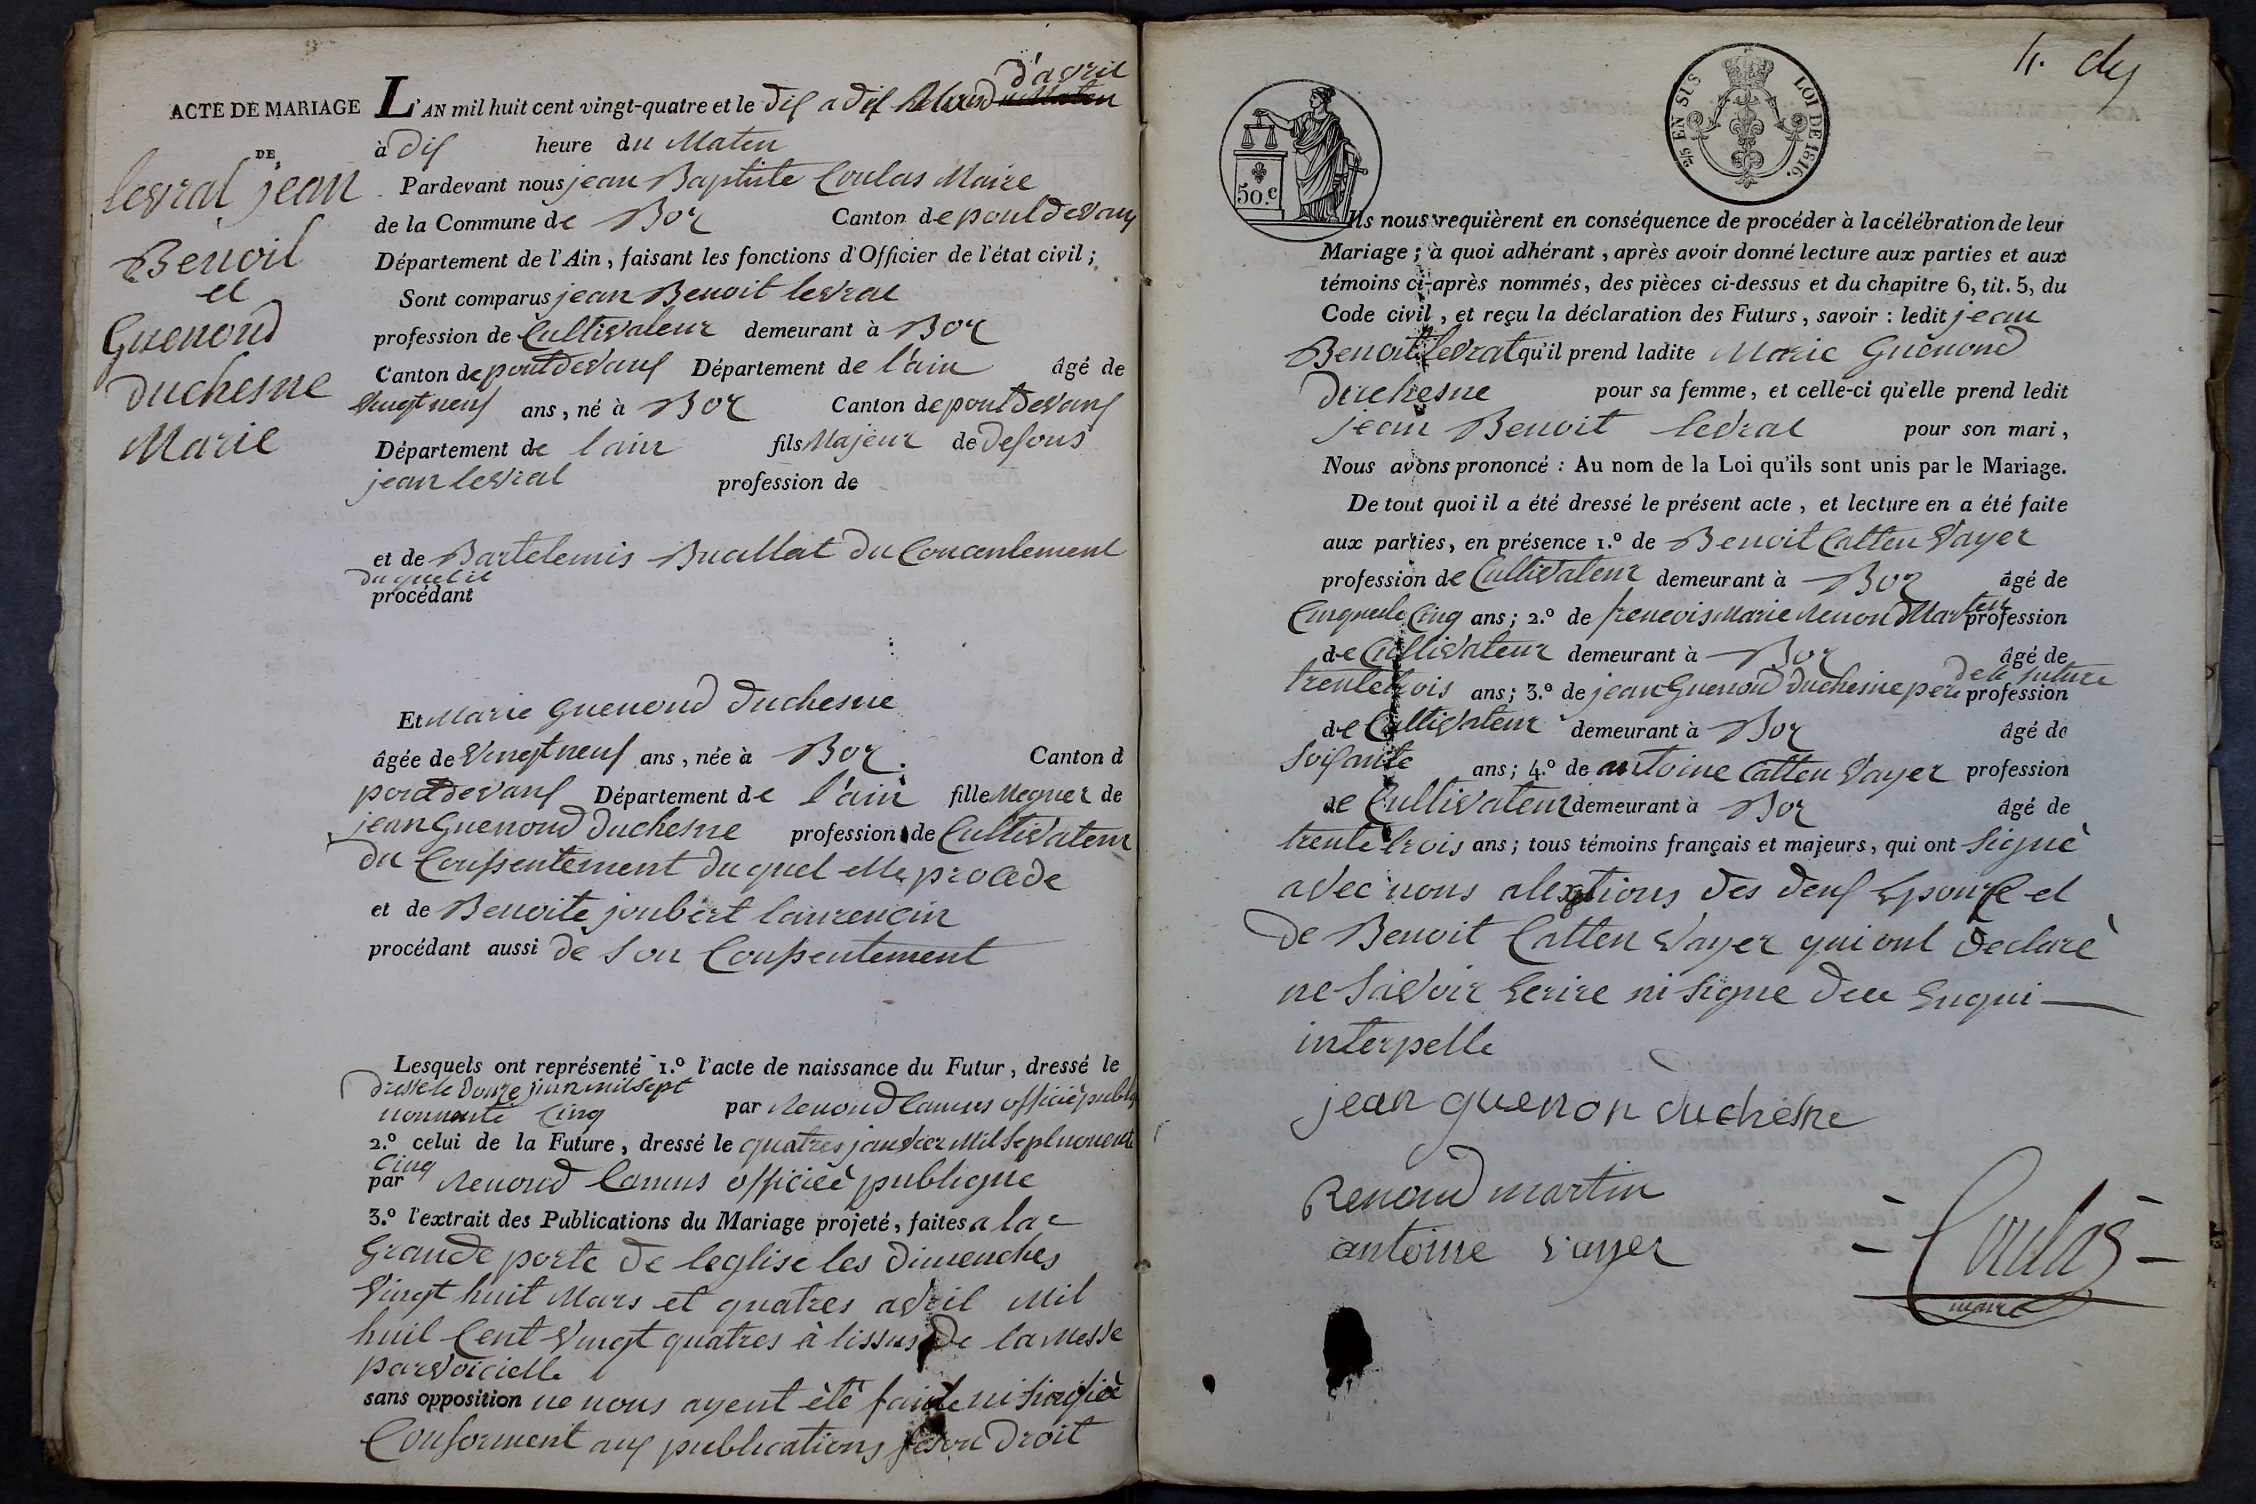 d'avril
ACTE DE MARIAGE L'AN mil huit cent vingt-quatre et le dix
à dix heure du Maten
DE
levrat jean
Pardevant nous jean Baptiste Coulas Maire
de la Commune de Boz Canton de pontdevaux
Benoit
Département de l'Ain, faisant les fonctions d'Officier de l'état civil;
et
Sont comparus jean Benoit levrat
Guenoud
profession de Cultivateur demeurant à Boz
Canton de pontdevaux Département de l'ain âgé de
duchesne
Vingt neuf ans, né à Boz Canton de pontdevaux
Marie
Département de lain fils Majeur de defous
jean levrat profession de
et de Bartelemis Buallat du Concentement
duquel il
procédant
Et Marie Guenoud duchesne
âgée de Vingt neuf ans, née à Boz. Canton d
pontdevaux Département de l'ain fille Megner de
jean Guenoud duchesne profession de Cultivateur
du Conssentement du quel elle procede
et de Benoite joubert laurencin
procédant aussi de son Conssentement
Lesquels ont représenté 1.º l'acte de naissance du Futur, dressé le
dresse le douze juin mil sept
nonnente Cinq par Renoud Camus officié publiq
2.º celui de la Future, dressé le quatres janvier Mil Sept nonente
Cinq
par Renoud Camus officiée publique
3.º l'extrait des Publications du Mariage projeté, faites a la
Grande porte de leglise les dimenches
Vingt huit Mars et quatres avril Mil
huit Cent Vingt quatres à lissus de la Messe
parvoicielle
sans opposition ne nous ayent été faitte ni
Conforment aux publications
4. dix
2/5 EN SUS
LOI DE 1816.
50.c
Ils nous requièrent en conséquence de procéder à la célébration de leur
Mariage; à quoi adhérant, après avoir donné lecture aux parties et aux
témoins ci-après nommés, des pièces ci-dessus et du chapitre 6, tit. 5, du
Code civil, et reçu la déclaration des Futurs, savoir: ledit jean
Benoit levrat qu'il prend ladite Marie Guenoud
duchesne pour sa femme, et celle-ci qu'elle prend ledit
jean Benoit levrat pour son mari,
Nous avons prononcé: Au nom de la Loi qu'ils sont unis par le Mariage.
De tout quoi il a été dressé le présent acte, et lecture en a été faite
aux parties, en présence 1.º de Benoit Catten Vayer
profession de Cultivateur demeurant à Boz âgé de
Cinquente Cinq ans; 2.º de frencois Marie Renoud Marten profession
de Cultivateur demeurant à Boz âgé de
trente trois ans; 3.º de jean Guenoud duchesne pere de le future profession
de Cultivateur demeurant à Boz âgé de
soixante ans; 4.º de antoine Catten Vayer profession
de Cultivateur demeurant à Boz âgé de
trente trois ans; tous témoins français et majeurs, qui ont signé
avec nous alexptions des deux Epouze et
de Benoit Catten Vayer qui ont declaré
ne savoir Ecrire ni signe deu Enqui
interpelle
jean guenon duchesne
Renoud martin
antoine vayer
Coulas
maire